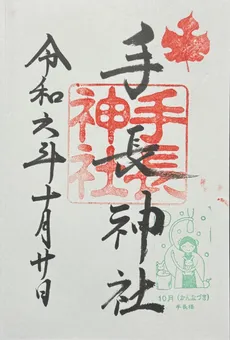 手長神社
手長
神社
令和六年十月廿日
10月(かんなづき)
手長様